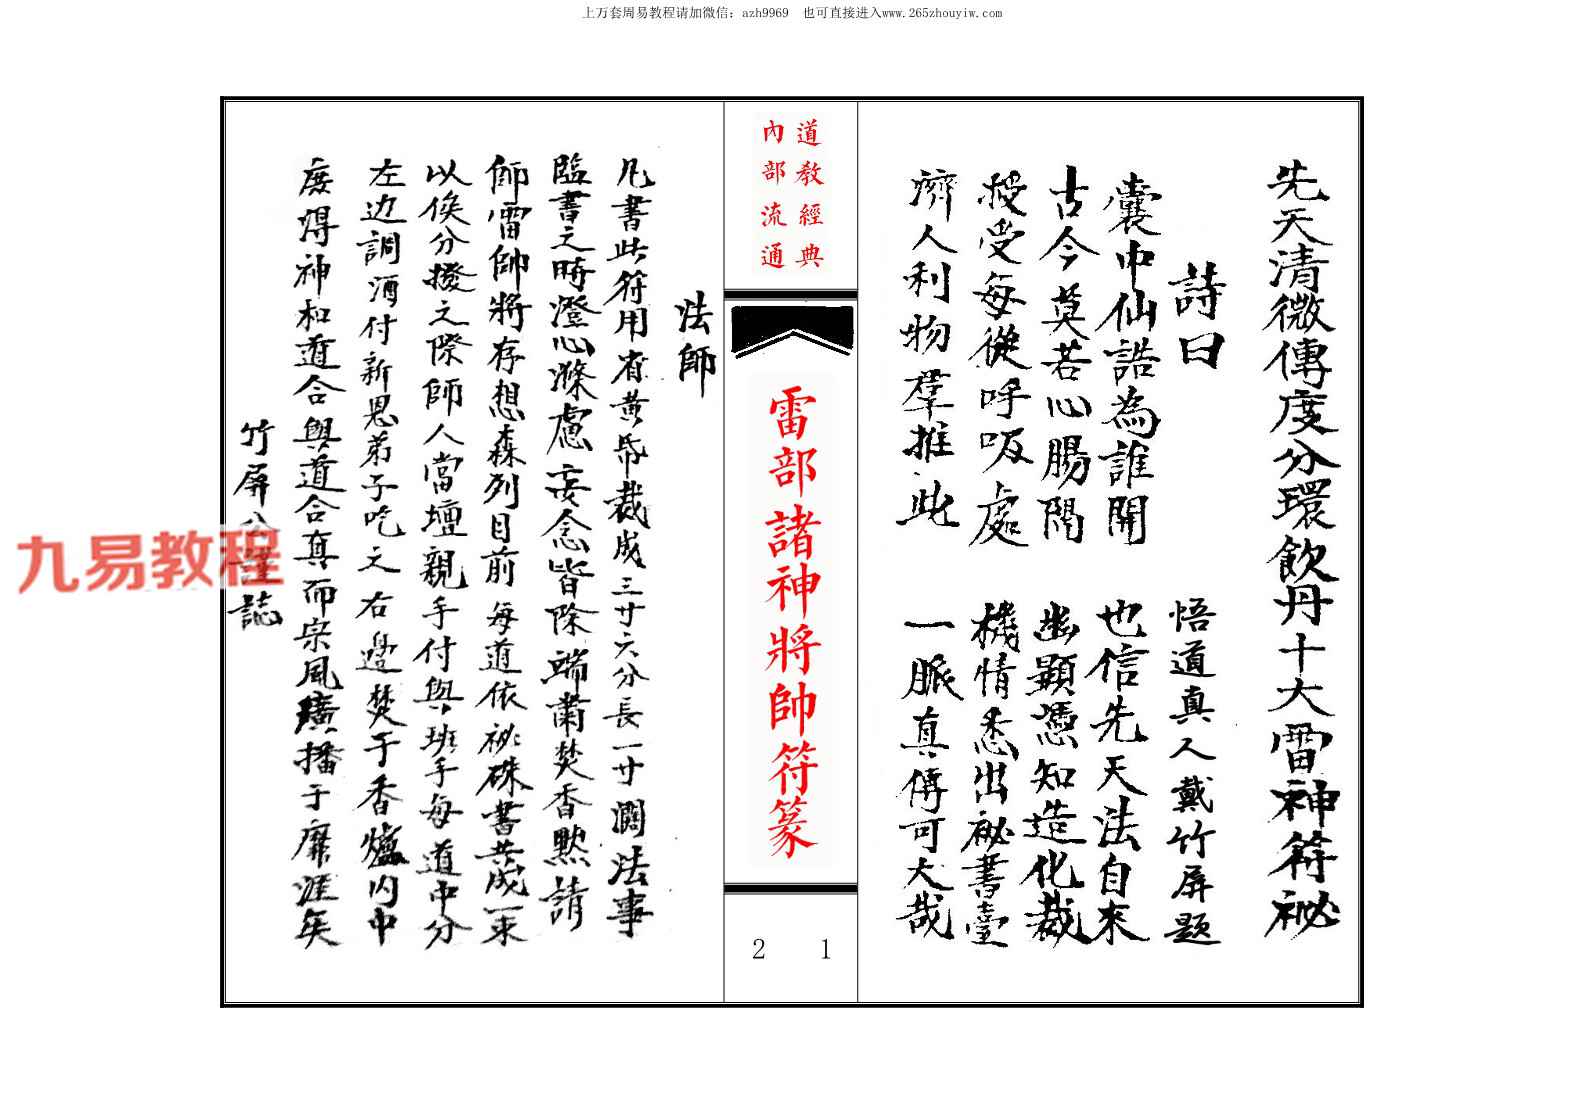 上万套周易教程请加微信: azh9969 也可直接进入www.265zhouyiw.com
先天清微傳度分環飲丹十大雷神符祕
詩曰 悟道真人戴竹屏題
囊中仙誥為誰開 也信先天法自來
古今莫若心腸隔 幽顯憑知造化裁
授受每從呼吸處 機情悉出祕書臺
濟人利物羣推此 一脈真傳可大哉
道教經典
內部流通
雷部諸神將帥符篆
2 1
法師
凡書此符用省黃帋裁成三寸六分長一寸濶法事
臨書之時澄心滌慮妄念皆除端肅焚香默請
師雷帥將存想森列目前每道依祕硃書共成一束
以俟分撥之際師人當壇親手付與班手每道中分
左边調酒付新恩弟子吃之右邊焚于香爐內中
度得神和道合與道合真而宗風廣播于靡涯矣
竹屏公謹誌
九易教程